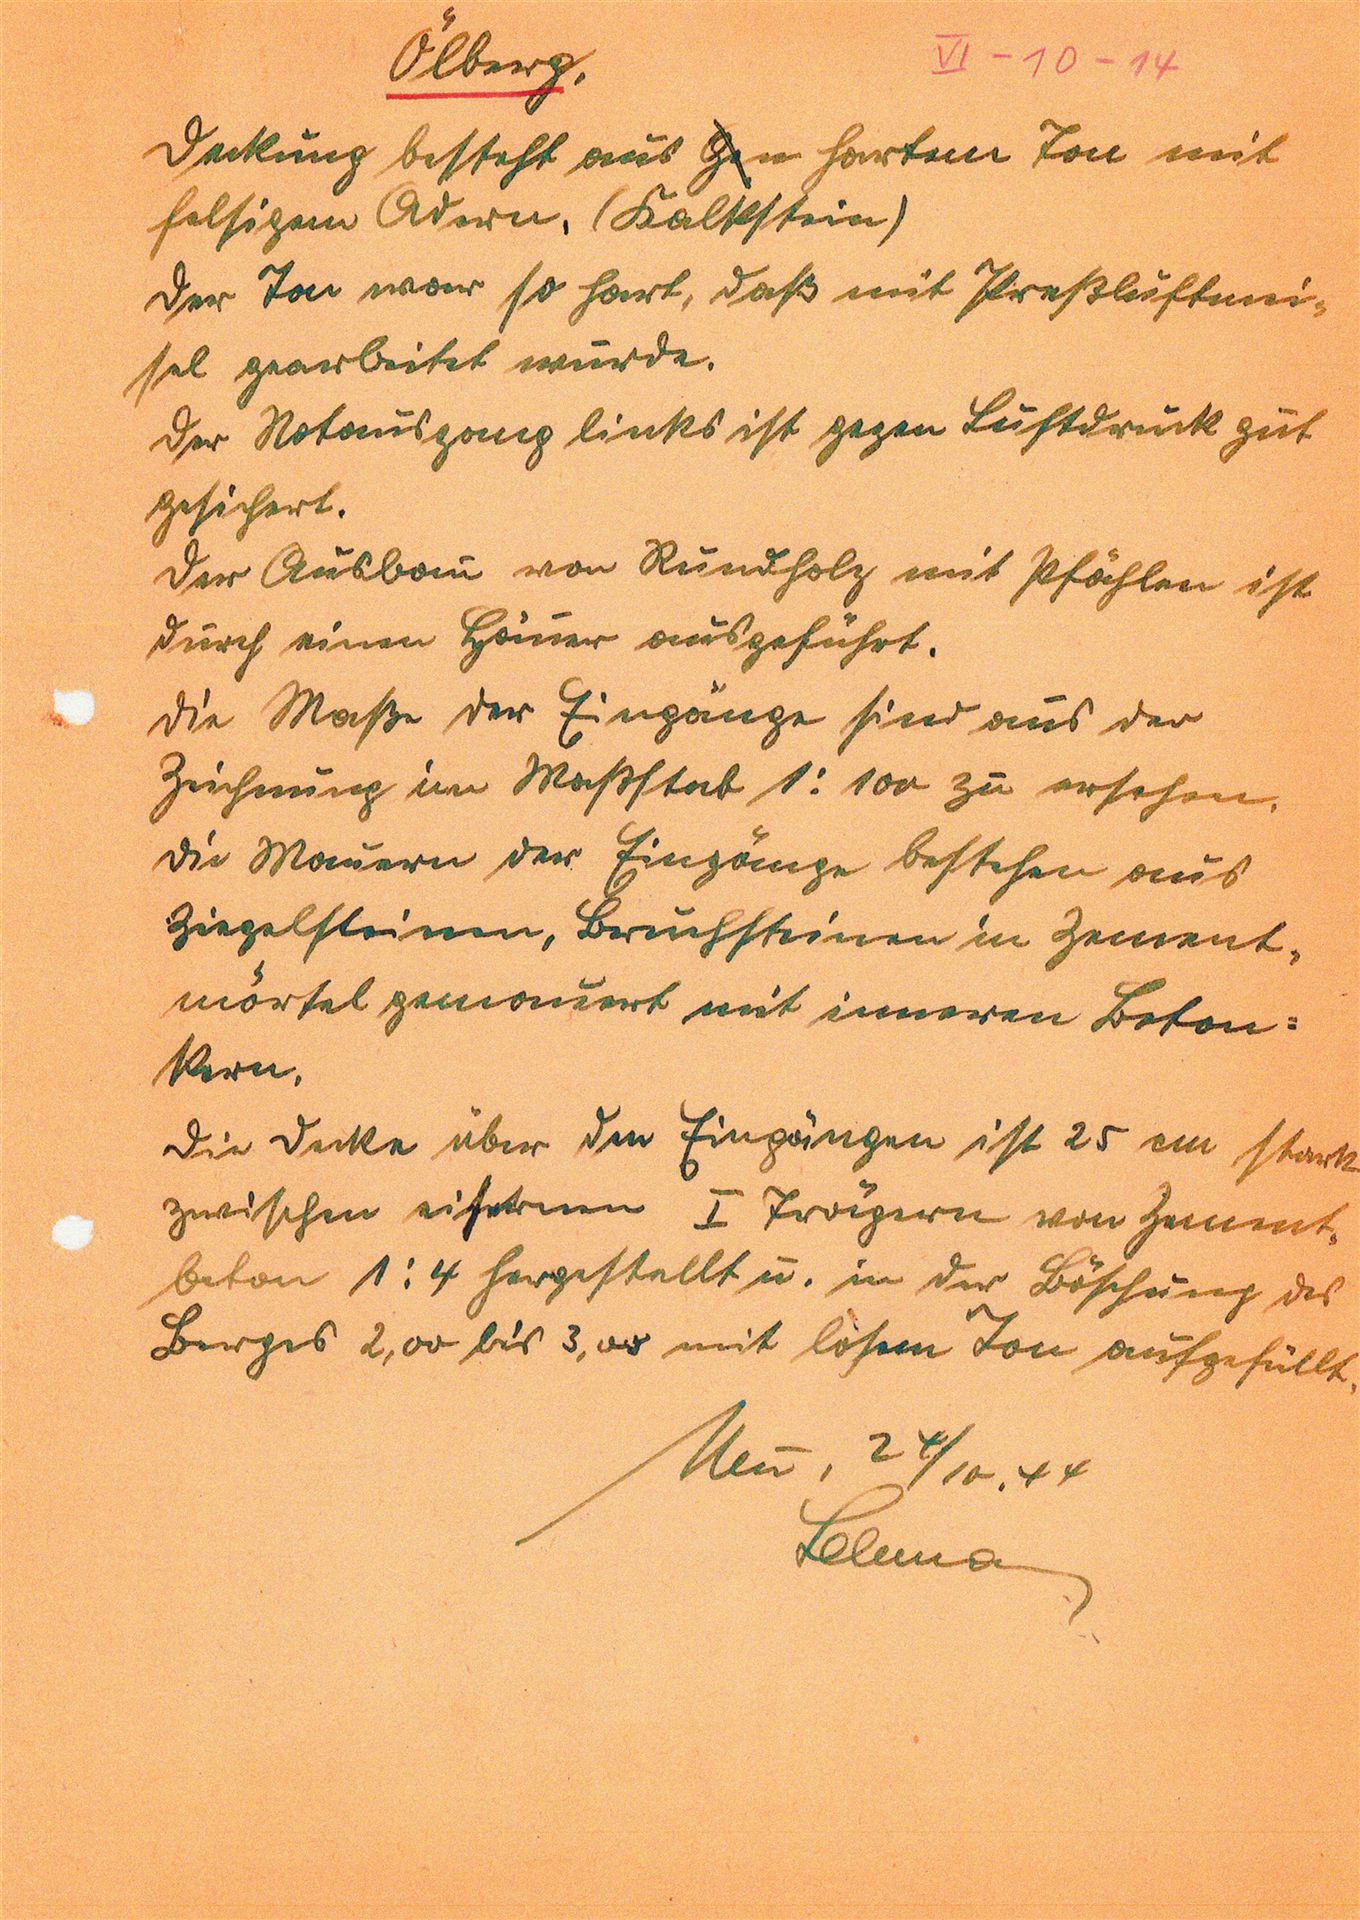 Ölberg.
VI - 10 - 14
Deckung besteht aus hartem Ton mit
felsigem Adern. (Kalkstein)
Der Ton war so hart, daß mit Preßluftmei-
sel gearbeitet wurde.
Der Notausgang links ist gegen Luftdruck gut
gesichert.
Der Ausbau von Rundholz mit Pfählen ist
durch einen Häuer ausgeführt.
Die Maße der Eingänge sind aus der
Zeichnung im Maßstab 1:100 zu ersehen.
Die Mauern der Eingänge bestehen aus
Ziegelsteinen, Bruchsteinen in Zement-
mörtel gemauert mit inneren Beton=
kern.
Die Decke über den Eingängen ist 25 cm stark
zwischen eisernen I Trägern von Zement-
beton 1:4 hergestellt u. in der Böschung des
Berges 2,00 bis 3,00 mit losem Ton aufgefüllt.
24/10.44